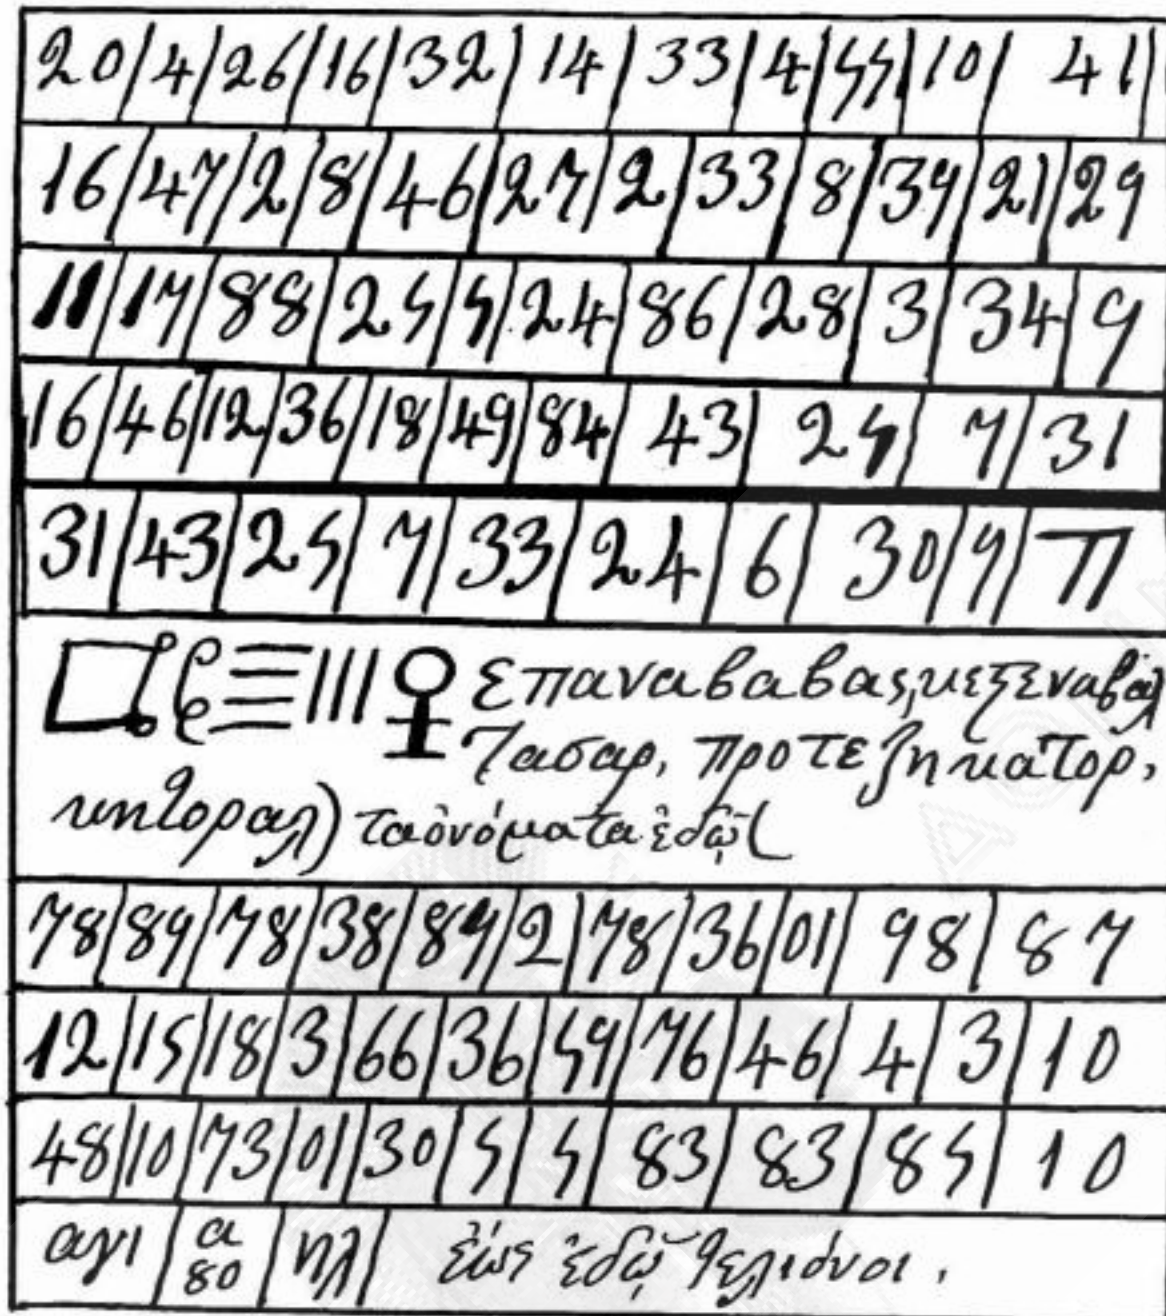 20/4/26/16/32/14/33/4/55/10/41
16/47/2/8/46/27/2/33/8/39/21/29
11/17/88/25/5/24/86/28/3/34/9
16/46/12/36/18/49/84/43/25/7/31
31/43/25/7/33/24/6/30/9/Π
επαναβαβας, κεξεναβαλ
Τασαρ, προτεζηκάτορ,
κητοραλ) τα ὀνόματα ἐδῶ(
78/89/78/38/89/2/78/36/01/98/87
12/15/18/3/66/36/59/76/46/4/3/10
48/10/73/01/30/5/5/83/83/85/10
αγι/α 80/ηλ/ ἕως ἐδῶ